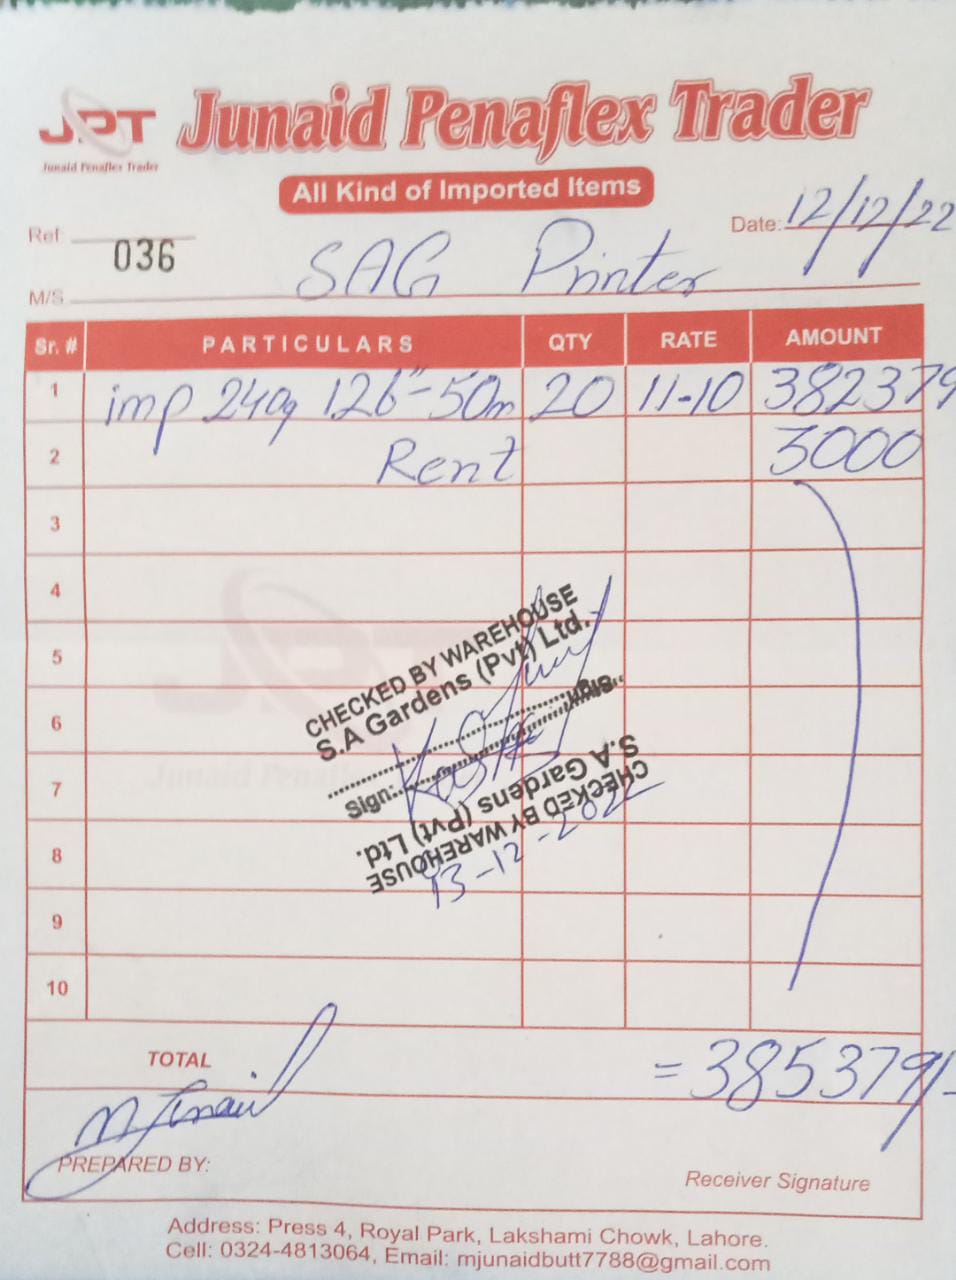 JPT Junaid Penaflex Trader
Junaid Penaflex Trader
All Kind of Imported Items
Ref: 036 Date: 12/12/22
M/S SAG Printer
Sr. # PARTICULARS QTY RATE AMOUNT
1 imp 240g 126"-50m 20 11-10 382379
2 Rent 3000
3
4
5
6
7
8
9
10
CHECKED BY WAREHOUSE
S.A Gardens (Pvt) Ltd.
Sign:
Sign:
S.A Gardens (Pvt) Ltd.
CHECKED BY WAREHOUSE
13-12-2022
TOTAL = 385379/-
M Junaid
PREPARED BY:
Receiver Signature
Address: Press 4, Royal Park, Lakshami Chowk, Lahore.
Cell: 0324-4813064, Email: mjunaidbutt7788@gmail.com